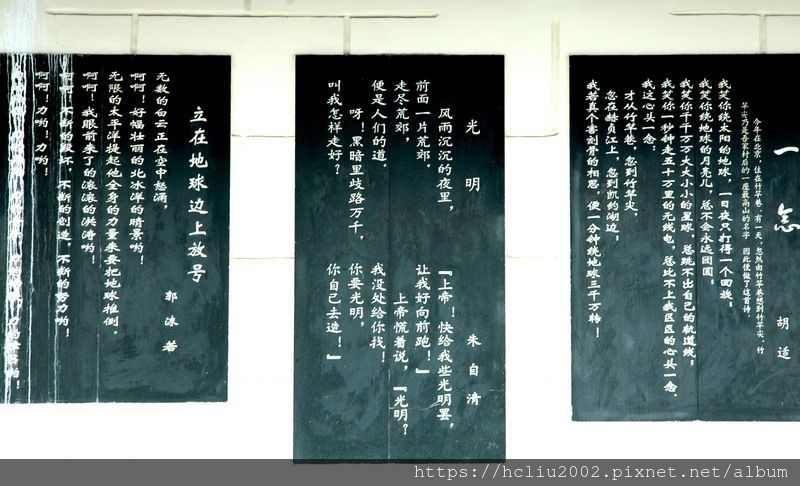 一念
胡适
今年在北京，住在竹竿巷。有一天，忽然由竹竿巷想到竹竿尖，竹
竿尖乃是吾家村后的一座最高山的名字，因此便做了这首诗。
我笑你绕太阳的地球，一日夜只打得一个回旋；
我笑你绕地球的月亮儿，总不会永远团圆；
我笑你千千万万大大小小的星球，总跳不出自己的轨道线；
我笑你一秒钟走五十万里的无线电，总比不上我区区的心头一念。
我这心头一念：
才从竹竿巷，忽到竹竿尖，
忽在赫贞江上，忽到凯约湖边；
我若真个害刻骨的相思，便一分钟绕地球三千万转！
光明
朱自清
风雨沉沉的夜里，
前面一片荒郊。
走尽荒郊，
便是人们的道。
呀！黑暗里歧路万千，
叫我怎样走好？
『上帝！快给我些光明罢，
让我好向前跑！』
上帝慌着说，『光明？
我没处给你找！
你要光明，
你自己去造！』
立在地球边上放号
郭沫若
无数的白云正在空中怒涌，
啊啊！好幅壮丽的北冰洋的晴景哟！
无限的太平洋提起他全身的力量来要把地球推倒。
啊啊！我眼前来了的滚滚的洪涛哟！
啊啊！不断的毁坏，不断的创造，不断的努力哟！
啊啊！力哟！力哟！
https://hcliu2002.pixnet.net/album